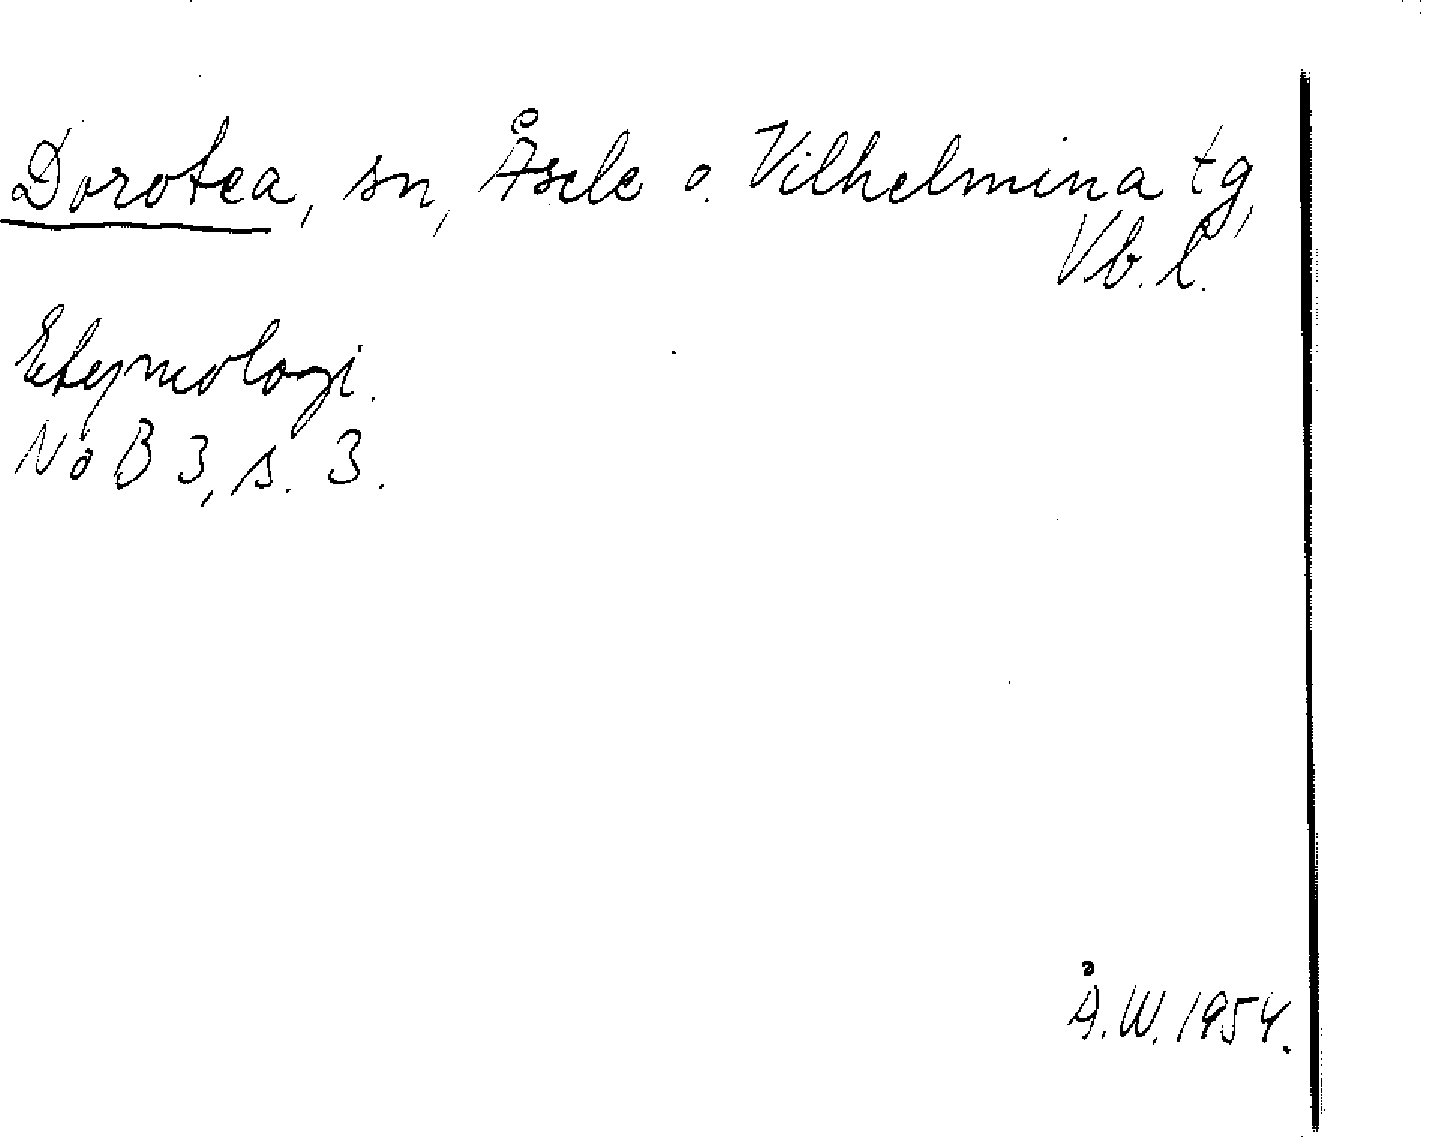 Dorotea, sn, Åsele o. Vilhelmina tg,
Vb. l.
Etymologi.
NoB 3, s. 3.
Å.W. 1954.